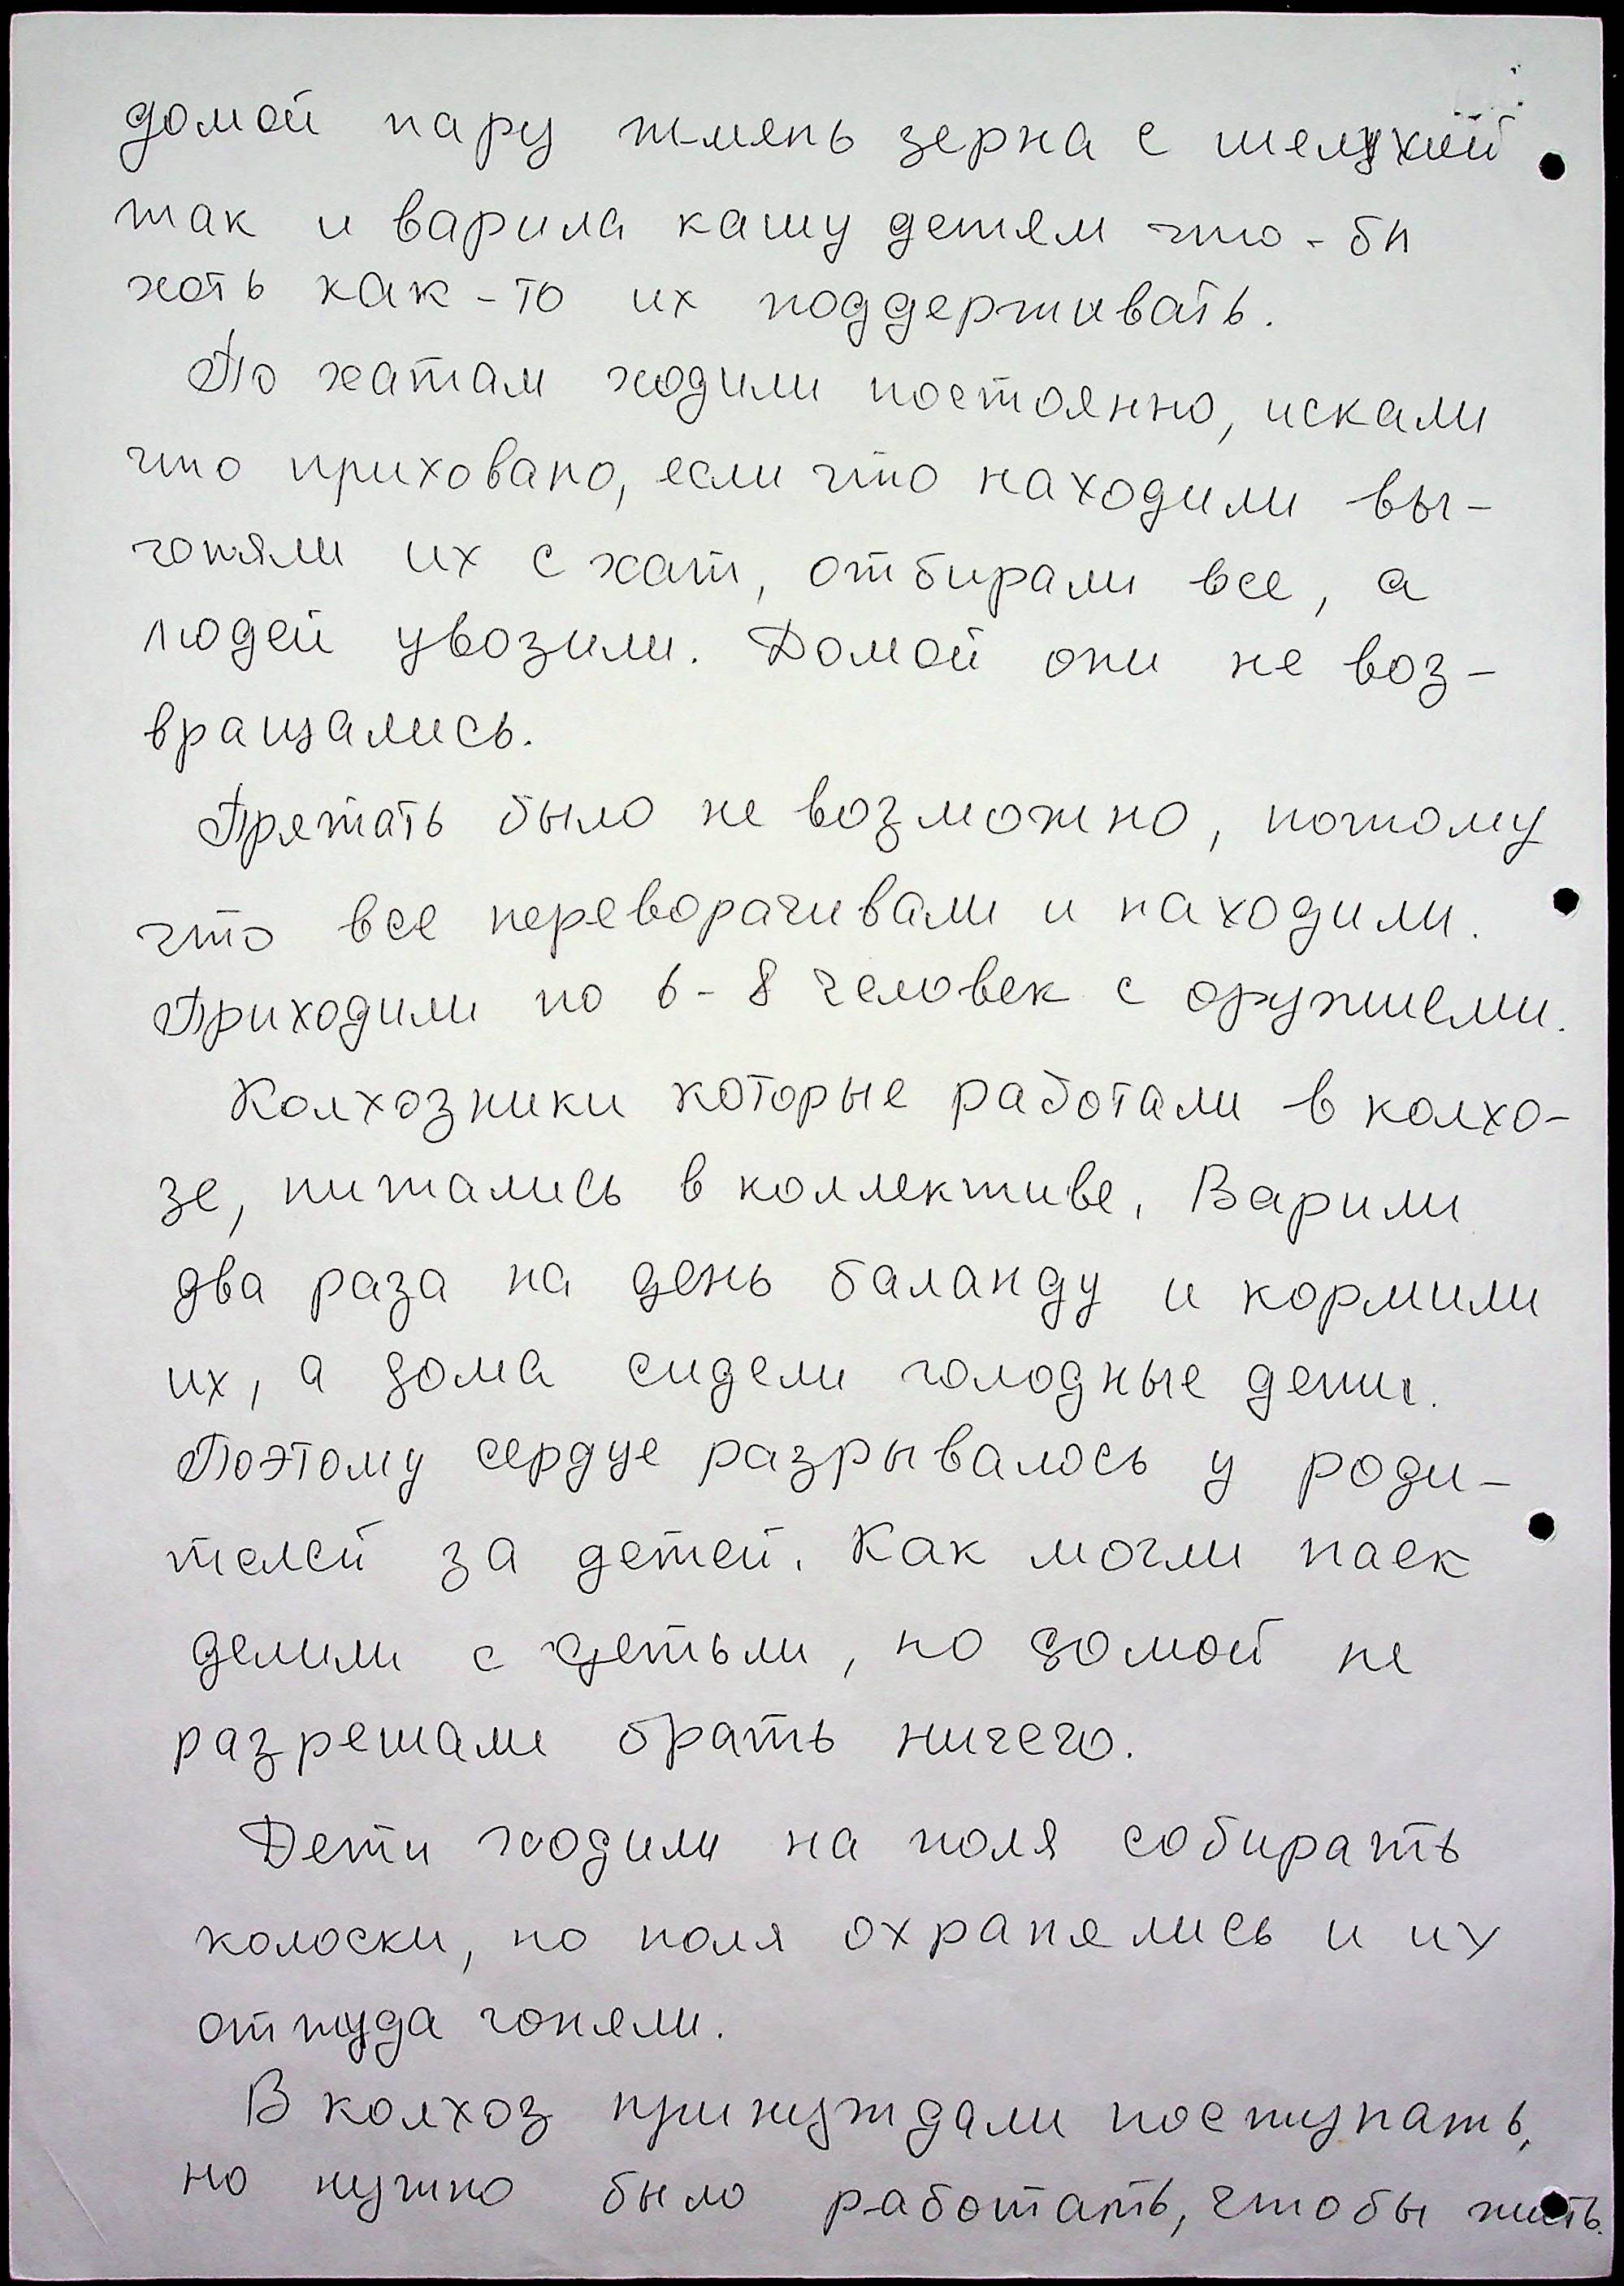 домой пару жмень зерна с шелухой
так и варила кашу детям что-бы
хоть как-то их поддерживать.
По хатам ходили постоянно, искали
что приховано, если что находили вы-
гоняли их с хат, отбирали все, а
людей увозили. Домой они не воз-
вращались.
Прятать было не возможно, потому
что все переворачивали и находили.
Приходили по 6-8 человек с оружиеми.
Колхозники которые работали в колхо-
зе, питались в коллективе. Варили
два раза на день баланду и кормили
их, а дома сидели голодные дети.
Поэтому сердце разрывалось у роди-
телей за детей. Как могли паек
делили с детьми, но домой не
разрешали брать ничего.
Дети ходили на поля собирать
колоски, но поля охранялись и их
оттуда гоняли.
В колхоз принуждали поступать,
но нужно было работать, чтобы жить.